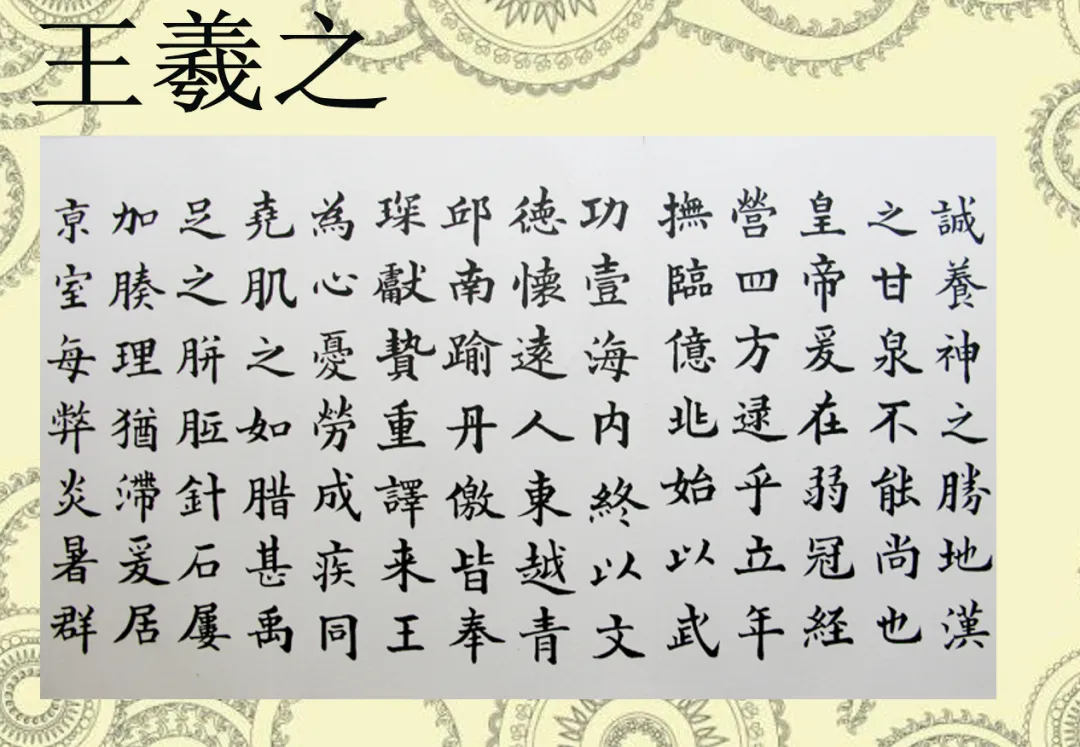 王羲之
誠養神之勝地漢
之甘泉不能尚也
皇帝爰在弱冠経
營四方逮乎立年
撫臨億兆始以武
功壹海内終以文
徳懷遠人東越青
邱南踰丹儌皆奉
琛獻贄重譯来王
為心憂勞成疾同
堯肌之如腊甚禹
足之胼胝針石屢
加腠理猶滯爰居
京室每弊炎暑群